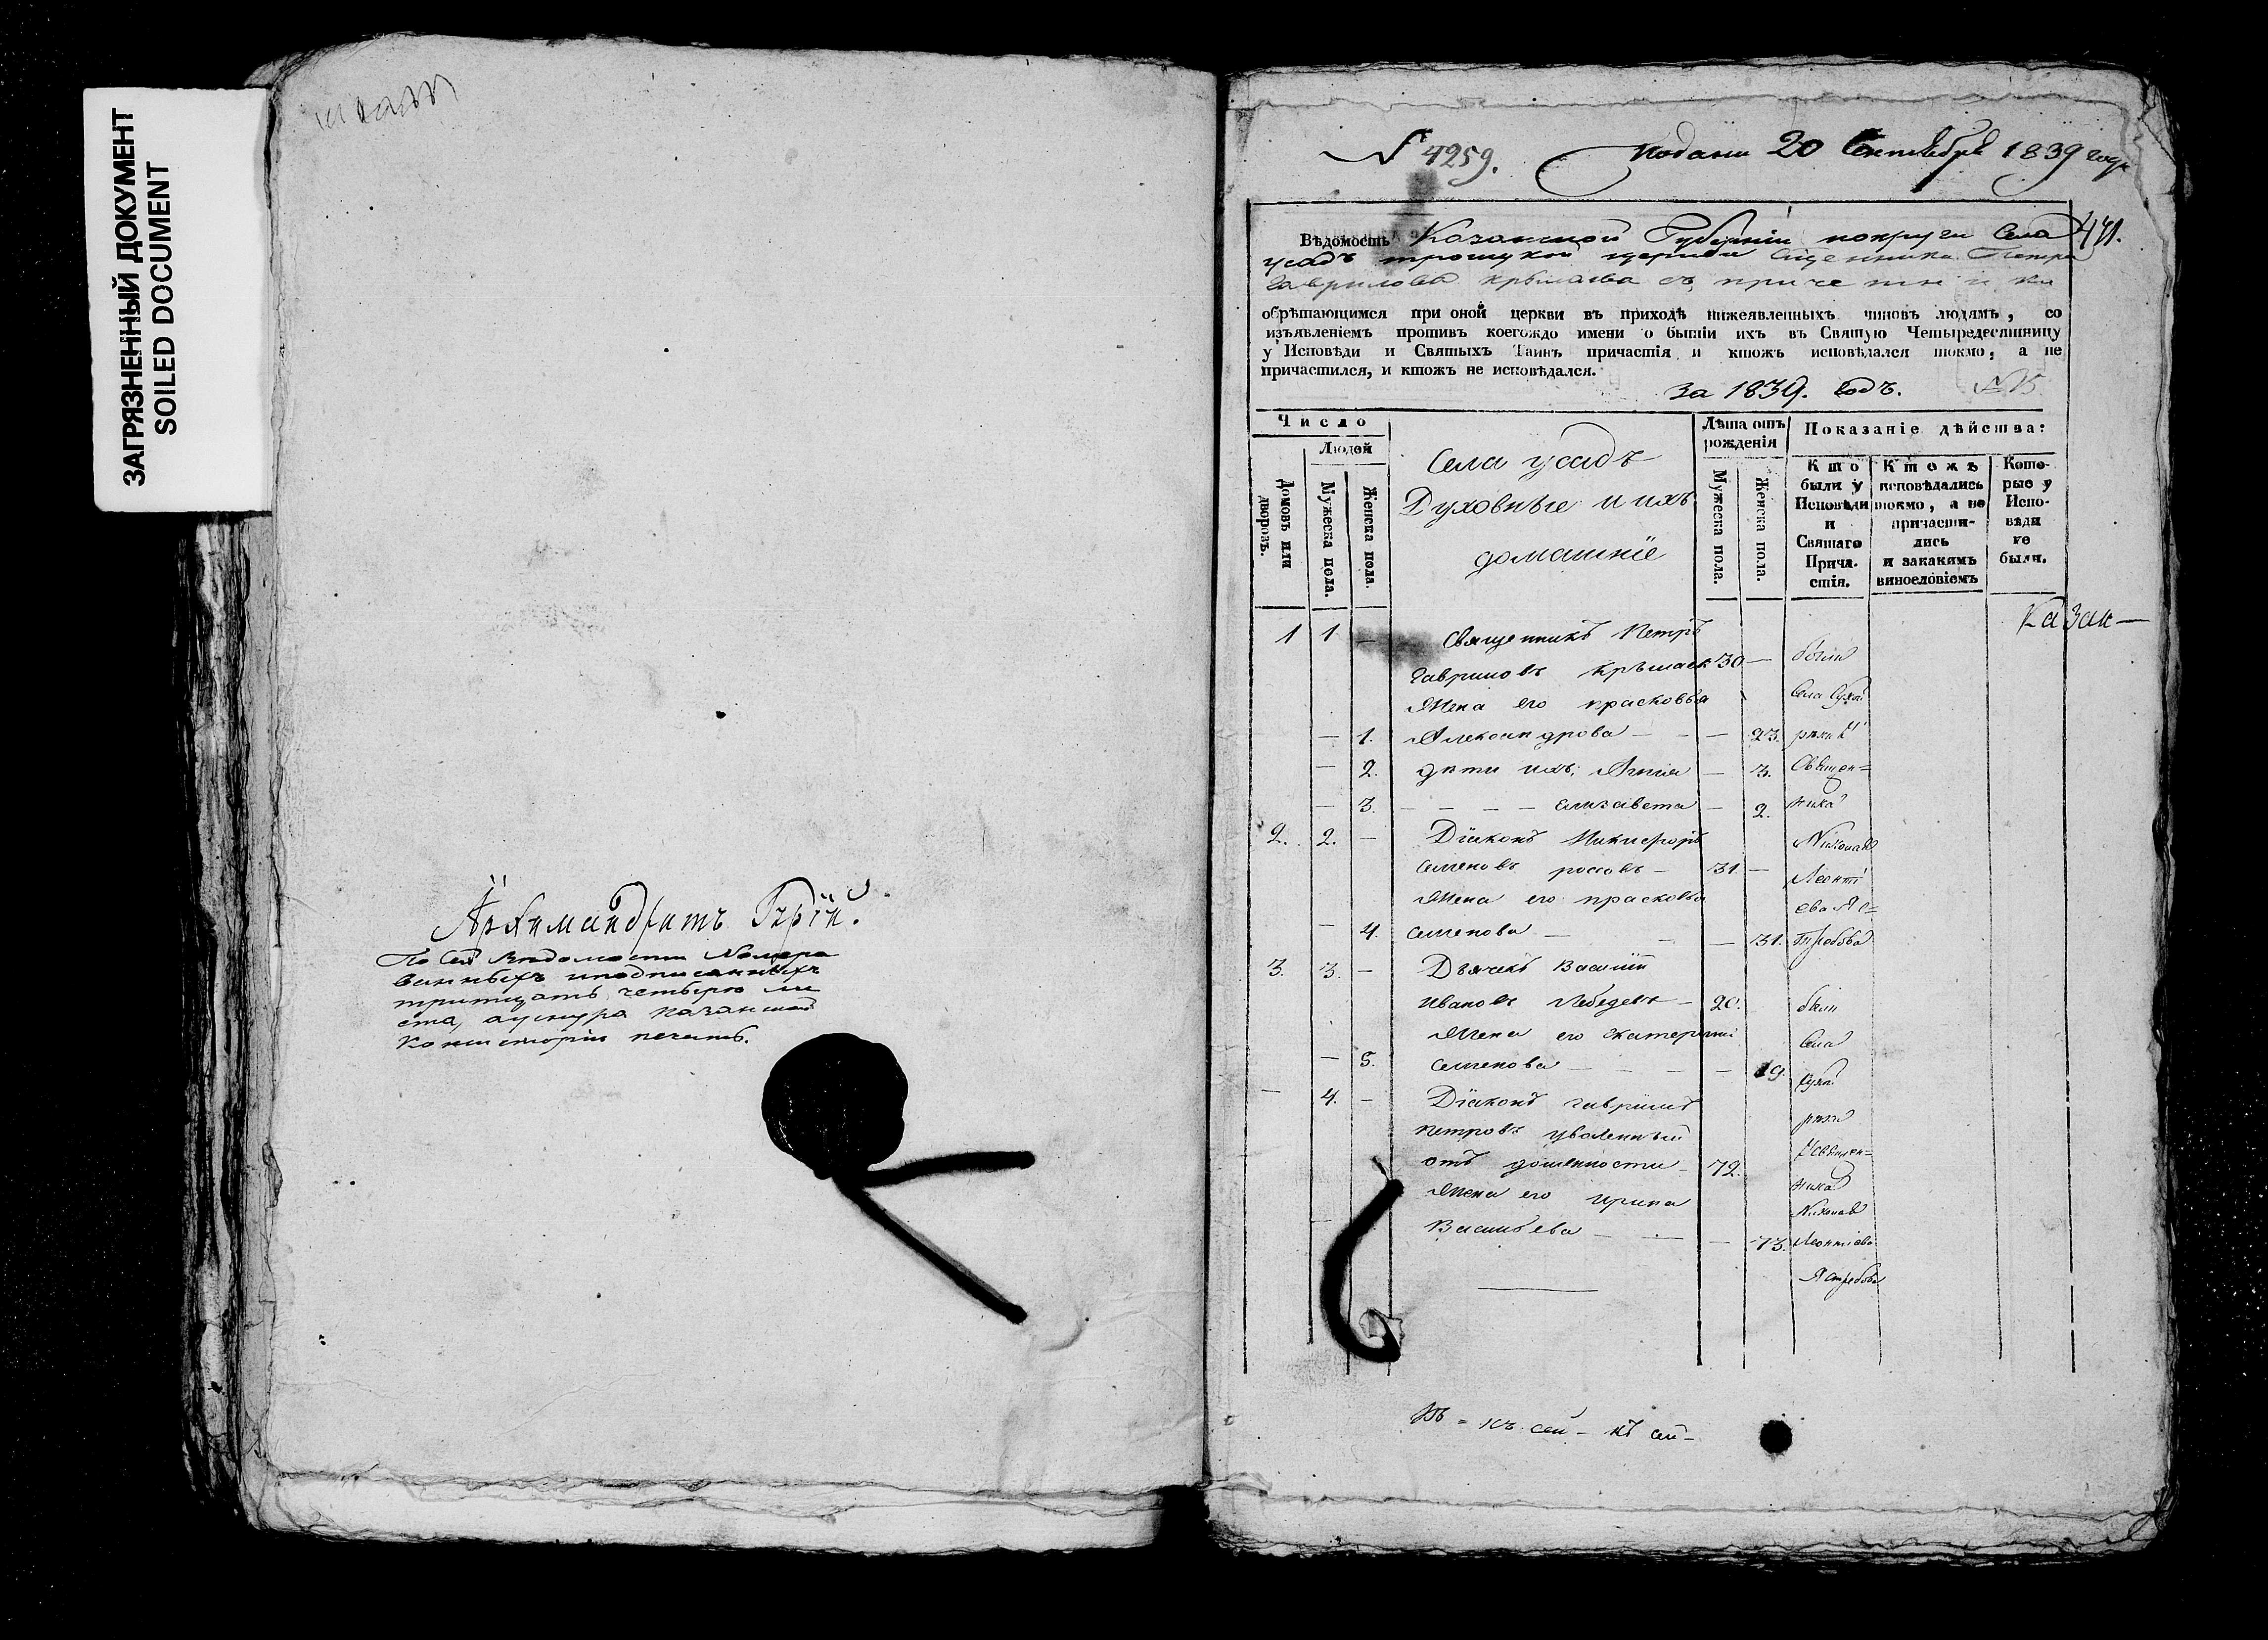 ЗАГРЯЗНЕННЫЙ ДОКУМЕНТ
SOILED DOCUMENT
Архимандритъ Гурій.
По сей ведомости Номеро
ванныхъ иподписанныхъ
тритцать четыре ли
ста, ашнура казанской
Консисторіи печать.
N 4259. Подани 20 Сентебре 1839 года
471.
Вѣдомость Казанской Губерніи Села
усадъ троицкой церкви Сщенника Петра
Гаврилова съ причетники
обрѣтающимся при оной церкви въ приходѣ нижеявленныхъ чиновъ людямъ, со
изъявленіемъ противъ коегождо имени о бытіи ихъ въ Святую Четыредесятницу
у Исповѣди и Святыхъ Таинъ причастія, и ктожъ исповѣдался токмо, а не
причастился, и ктожъ не исповѣдался.
за 1839. Годъ. N 15
Число
Людей
Домовъ или дворовъ.
Мужеска пола.
Женска пола.
Села усадъ
Духовные и ихъ
домашніе
Лѣта отъ рожденія
Мужеска пола.
Женска пола.
Показаніе дѣйства:
Кто были у Исповѣди и Святаго Причастія.
Ктожъ исповѣдались токмо, а не причастились и закакимъ винословіемъ
Которые у Исповѣди не были.
Казан—
1 1 — Священникъ Петръ
Гавриловъ 30 — были
Жена его прасковья Села
— 1. Александрова — — — 23. рѣки
— 2. дети ихъ; Анна — 3. Священ=
— 3. — — — — елизавета — 2. ника
2. 2. — Діаконъ Никифоръ Николая
Семеновъ россовъ — 31. — Леонті
Жена его прасковья ева Яс=
— 4. Семенова — — — 31. требова
3. 3. — Дьячекъ Василій
Ивановъ Лебедевъ — 20. были
Жена его екатерина Села
— 5. Семенова — — — — 19.
— 4. — Діаконъ гавриилъ рѣки
петровъ уволенный Священ=
отъ должности — 72. ника
Жена его ирина Николая
— Васильева — — — 73. Леонтіева
Ястребова
къ сей — къ сей —